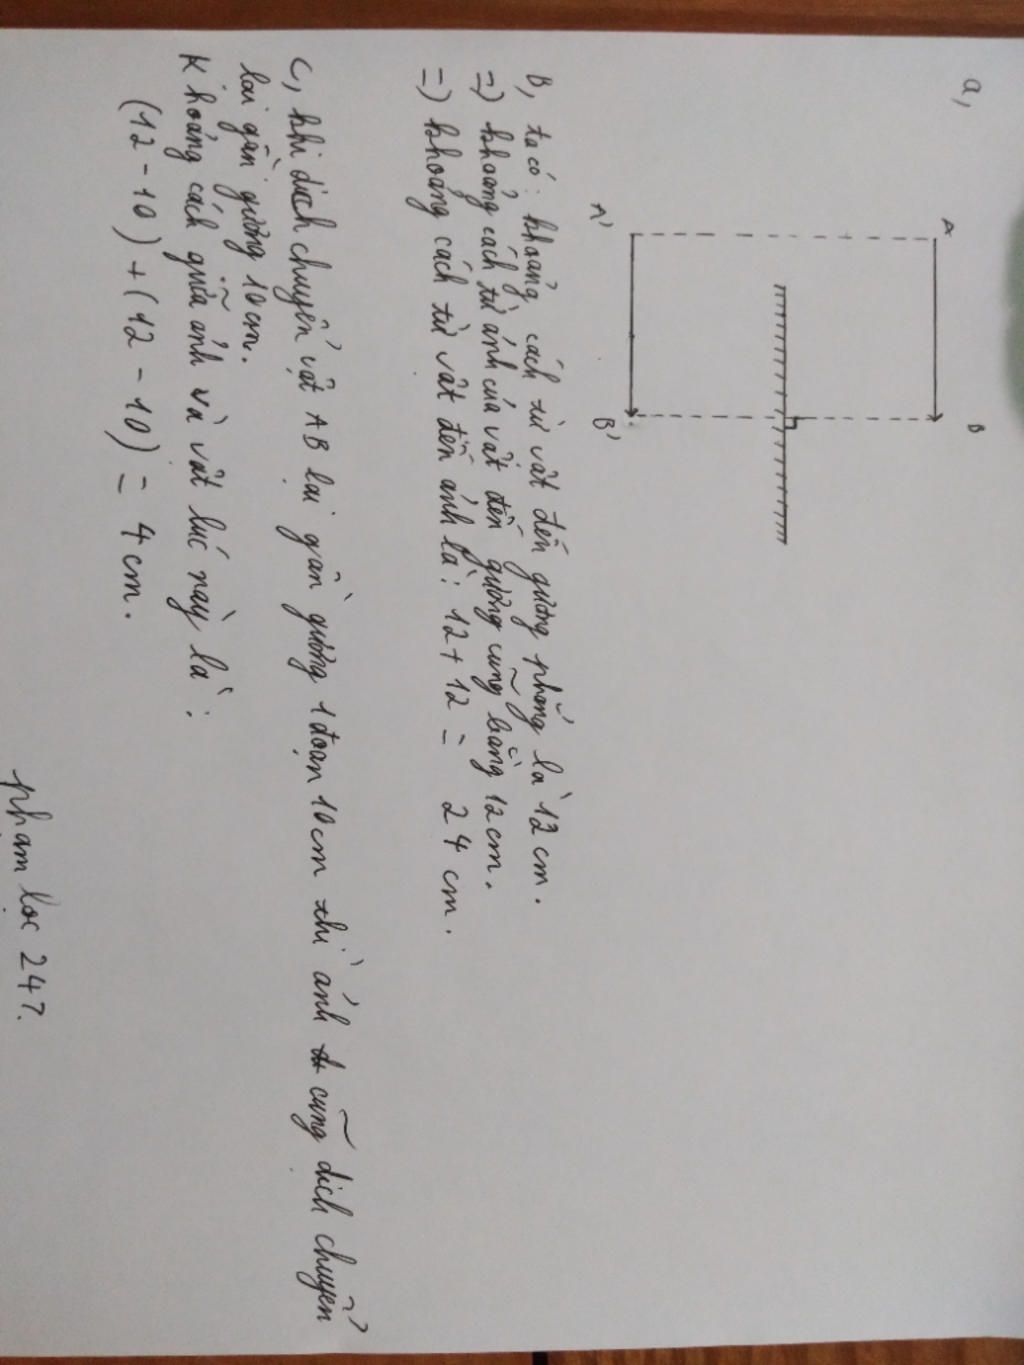 a,
A
B
A'
B'
B, ta có: khoảng cách từ vật đến gương phẳng là 12 cm.
=) khoảng cách từ ảnh của vật đến gương cũng bằng 12 cm.
=) khoảng cách từ vật đến ảnh là: 12 + 12 = 24 cm.
C, khi dịch chuyển vật AB lại gần gương 1 đoạn 10 cm thì ảnh cũng dịch chuyển
lại gần gương 10 cm.
Khoảng cách giữa ảnh và vật lúc này là:
(12 - 10) + (12 - 10) = 4 cm.
phạm lộc 247.